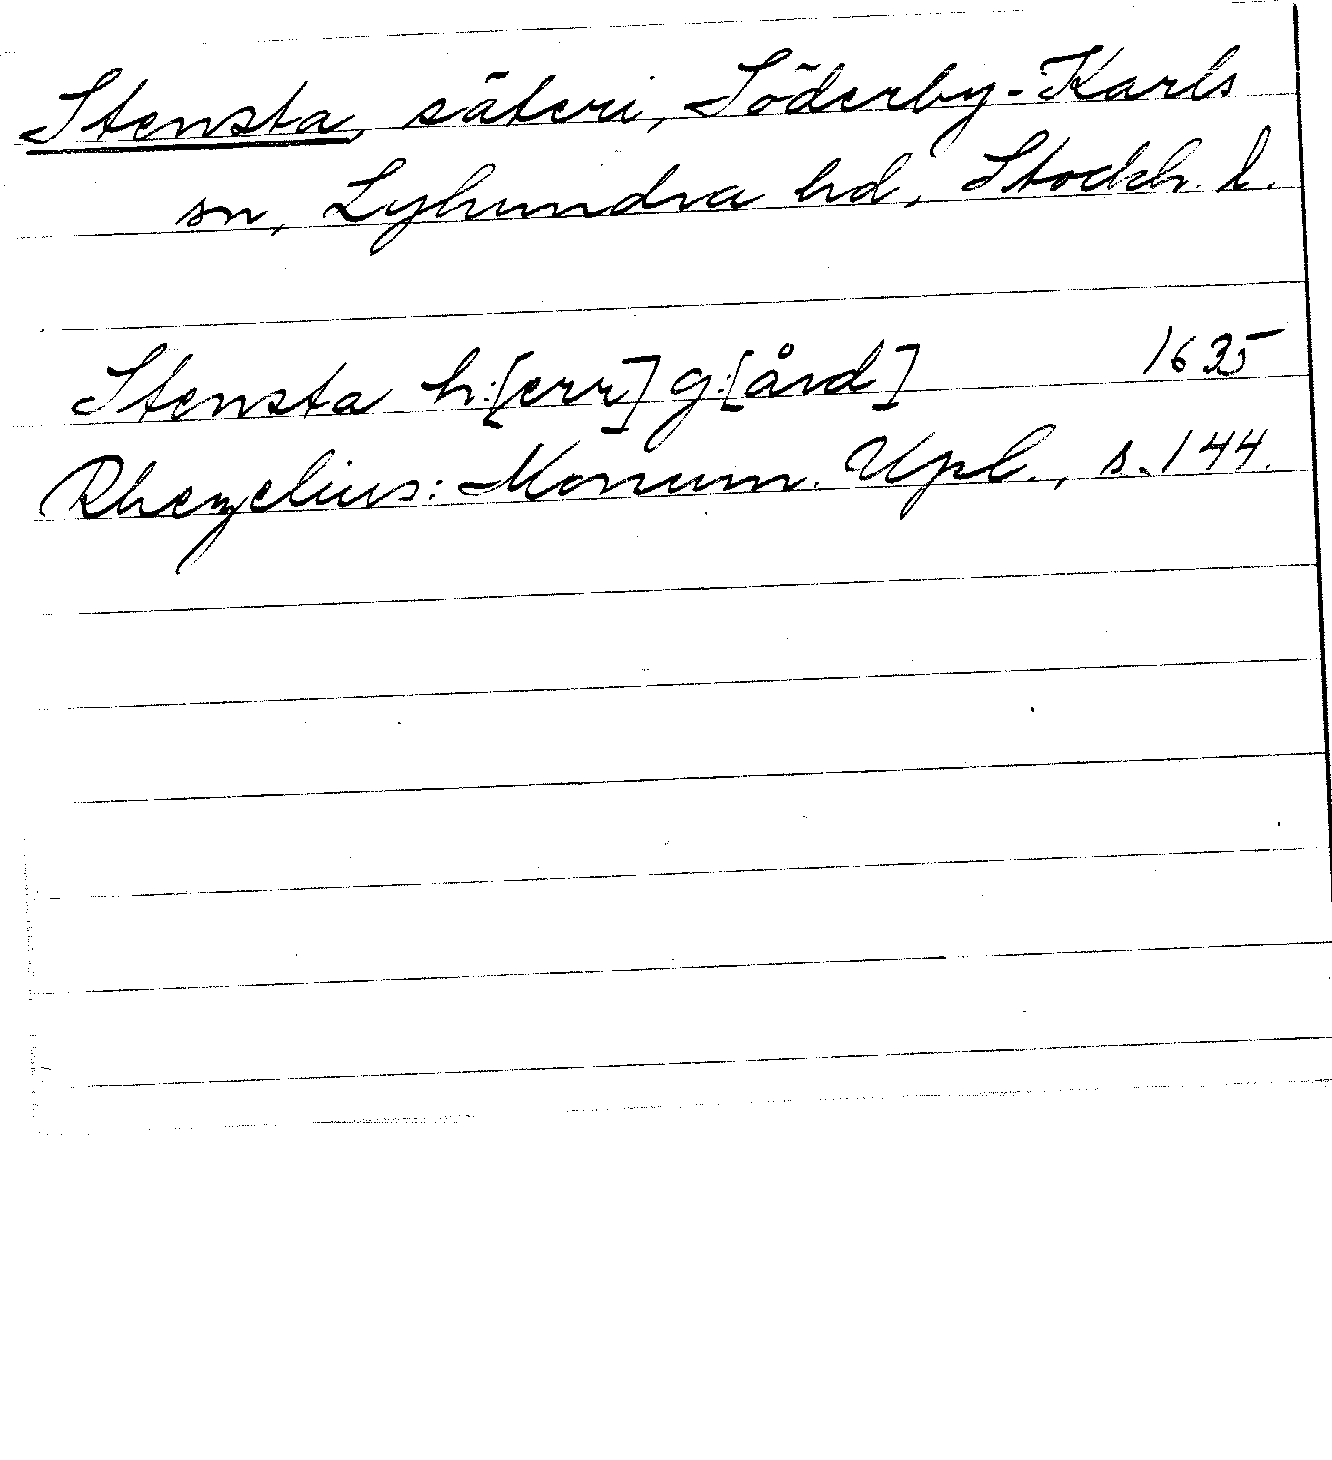 Stensta, säteri, Söderby-Karls
sn, Lyhundra hd, Stockh. l.
Stensta h:[err] g:[ård] 1635
Rhezelius: Monum. Upl., s. 144.